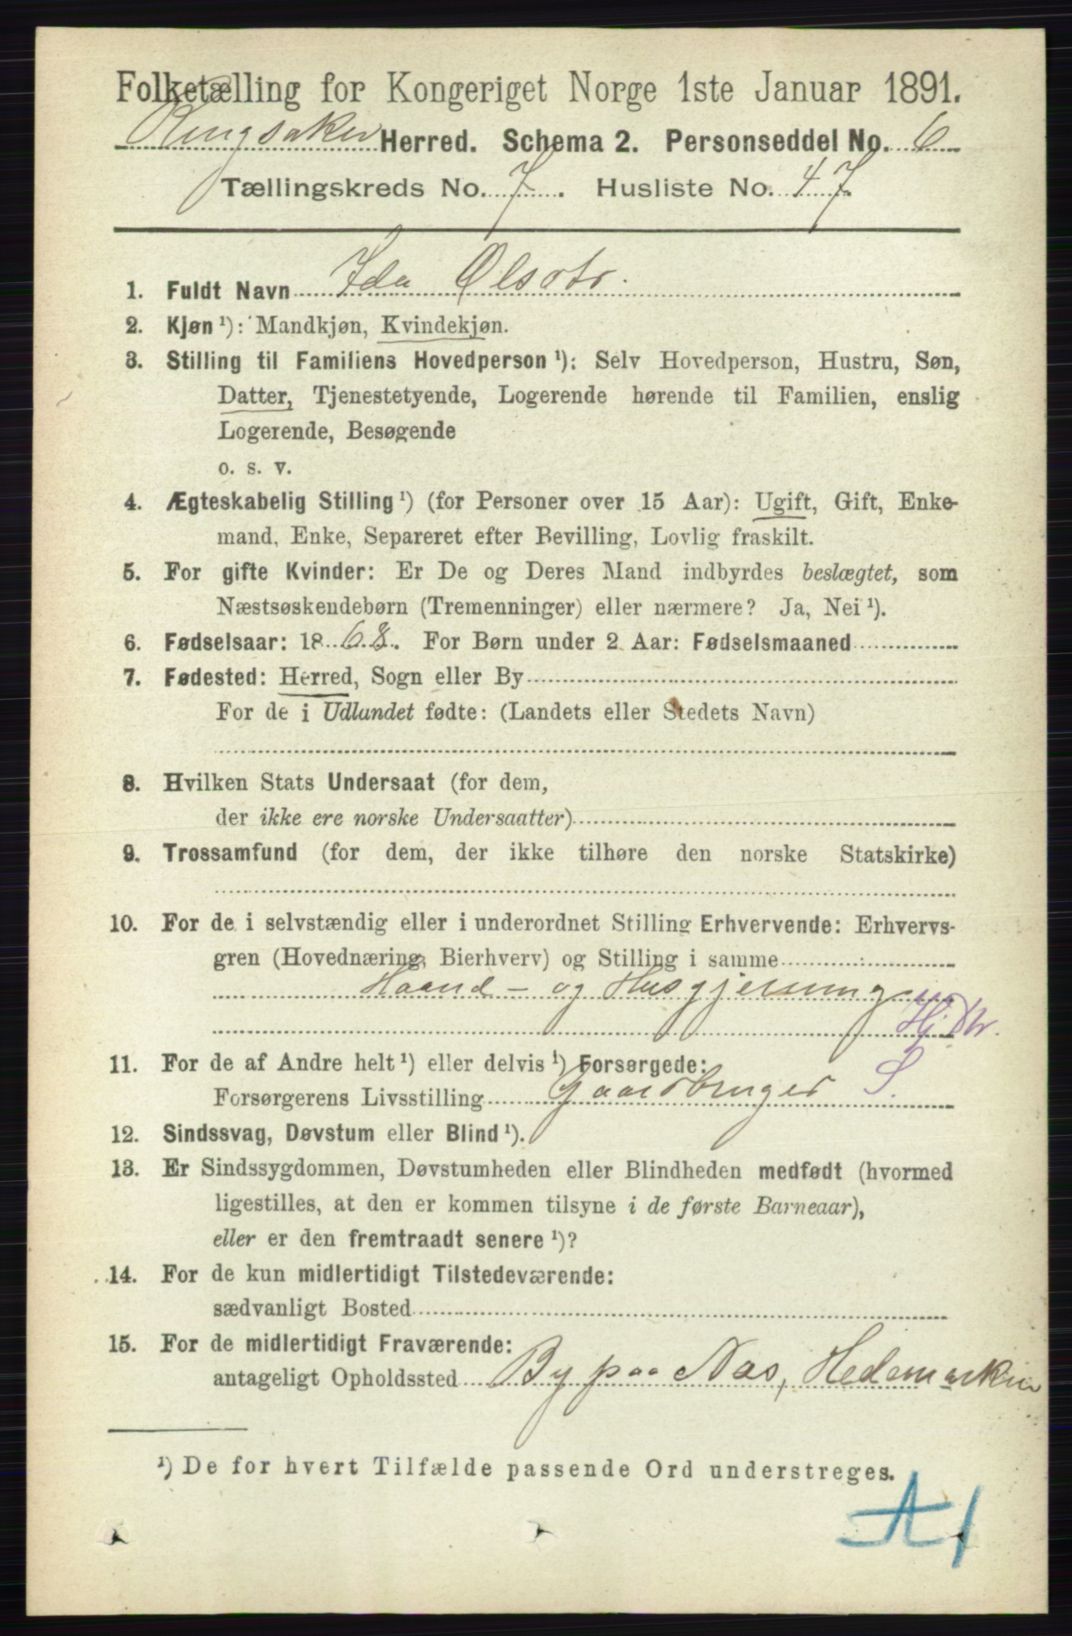 Folketælling for Kongeriget Norge 1ste Januar 1891.
Ringsaker Herred. Schema 2. Personseddel No. 6
Tællingskreds No. 7. Husliste No. 47
1. Fuldt Navn Ida Olsdtr.
2. Kjøn ¹): Mandkjøn, Kvindekjøn.
3. Stilling til Familiens Hovedperson ¹): Selv Hovedperson, Hustru, Søn,
Datter, Tjenestetyende, Logerende hørende til Familien, enslig
Logerende, Besøgende
o. s. v.
4. Ægteskabelig Stilling ¹) (for Personer over 15 Aar): Ugift, Gift, Enke-
mand, Enke, Separeret efter Bevilling, Lovlig fraskilt.
5. For gifte Kvinder: Er De og Deres Mand indbyrdes beslægtet, som
Næstsøskendebørn (Tremenninger) eller nærmere? Ja, Nei ¹).
6. Fødselsaar: 1868. For Børn under 2 Aar: Fødselsmaaned
7. Fødested: Herred, Sogn eller By
For de i Udlandet fødte: (Landets eller Stedets Navn)
8. Hvilken Stats Undersaat (for dem,
der ikke ere norske Undersaatter)
9. Trossamfund (for dem, der ikke tilhøre den norske Statskirke)
10. For de i selvstændig eller i underordnet Stilling Erhvervende: Erhvervs-
gren (Hovednæring, Bierhverv) og Stilling i samme
Haand- og Husgjerning
Hj. Dtr.
11. For de af Andre helt ¹) eller delvis ¹) Forsørgede:
Forsørgerens Livsstilling Gaardbruger S.
12. Sindssvag, Døvstum eller Blind ¹).
13. Er Sindssygdommen, Døvstumheden eller Blindheden medfødt (hvormed
ligestilles, at den er kommen tilsyne i de første Barneaar),
eller er den fremtraadt senere ¹)?
14. For de kun midlertidigt Tilstedeværende:
sædvanligt Bosted
15. For de midlertidigt Fraværende:
antageligt Opholdssted By paa Næs, Hedemarken
¹) De for hvert Tilfælde passende Ord understreges.
A1